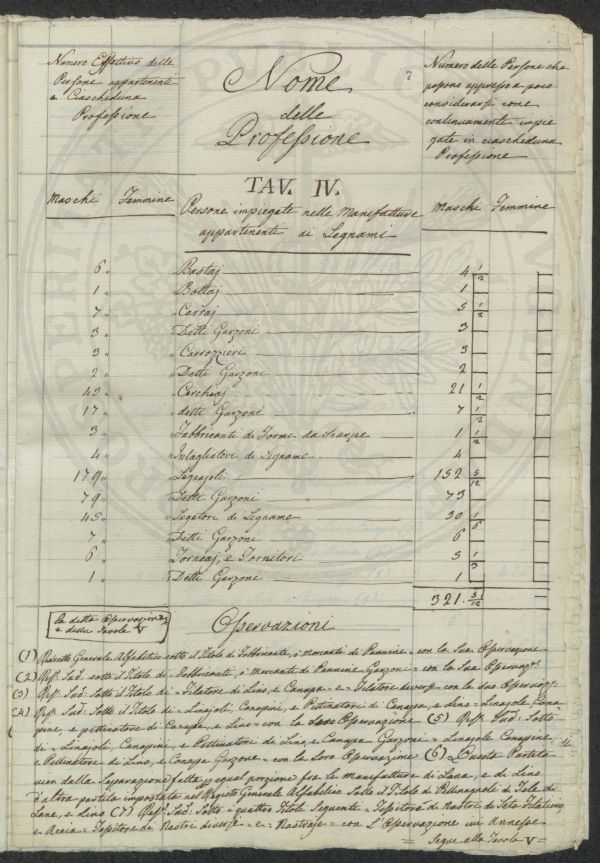 7
Numero Effettivo delle
Persone appartenenti
a Ciascheduna
Professione
Nome
delle
Professione
Numero delle Persone che
possono appresso a poco
considerarsi come
continuamente impie
gate in ciascheduna
Professione
TAV. IV.
Maschi Femmine
Persone impiegate nelle Manifatture
appartenenti ai Legnami
Maschi Femmine
6 " " Bastaj 4 1/2
1 " " Bottaj 1
7 " " Carraj 5 1/2
3 " " Detti Garzoni 3
3 " " Carrozzieri 3
2 " " Detti Garzoni 2
43 " " Cerchiaj 21 1/2
17 " " detti Garzoni 7 1/2
3 " " Fabbricanti di Forme da Scarpe 1 1/2
4 " " Intagliatori di Legname 4
179 " " Legnajoli 152 5/12
79 " " Detti Garzoni 73
45 " " Segatori di Legname 30 1/6
7 " " Detti Garzoni 6
6 " " Torniaj, e Tornitori 5 1/3
1 " " Detti Garzone 1
321. 51/12
la detta Osservazione
è della Tavola V
Osservazioni
(1) Ristretto Generale Alfabetico sotto il Titolo di Fabbricanti, o Mercanti di Pannine = con la Sua Osservazione
(2) Rist. Sud. sotto il Titolo di = Fabbricanti, o Mercanti di Pannine Garzoni = con la Sua Osservaz.
(3) Rist. Sud. Sotto il Titolo di = Filatore di Lino, e Canapa = e = Filatore diverse = con la sua Osservaz.
(4) Rist. Sud. Sotto il Titolo di = Linajoli, Canapini, e Pettinatori di Canapa, e Lino = Linajole Cana
pine, e pettinatrici di Canapa, e Lino = con la Loro Osservazione (5) Rist. Sud. Sotto
di = Linajoli, Canapini, e Pettinatori di Lino, e Canapa Garzoni = Linajole Canapine,
e Pettinatrici di Lino, e Canapa Garzone = con la Loro Osservazione (6) Questa Partita
vien dalla Separazione fatta per egual porzione fra le Manifatture di Lana, e di Lino
d'altra partita impostata nel Registro Generale Alfabetico Sotto il Titolo di di Tele di
Lane, e Lino (7) Rist. Sud. Sotto i quattro Titoli Seguenti = Tessitore di Nastri di Seta
e Accia = Tessitore di Nastri diverse = e = Nastraje = con L'Osservazione ivi Annessa
Segue alla Tavola V =